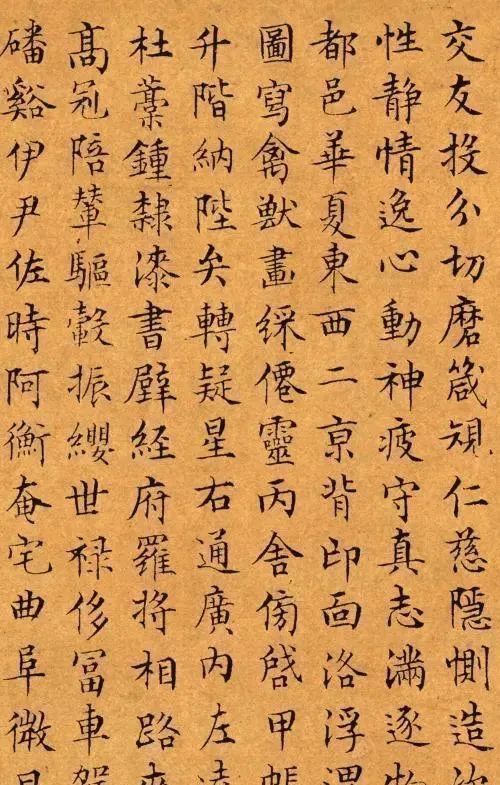 交友投分切磨箴規仁慈隱惻造次
性静情逸心動神疲守真志滿逐物
都邑華夏東西二亰背邙面洛浮渭
圖寫禽獸畫綵僊靈丙舍傍啓甲帳
升階納陛弁轉疑星右通廣内左達
杜藁鍾隸漆書壁経府羅將相路
髙冠陪輦驅轂振纓世禄侈冨車駕
磻谿伊尹佐時阿衡奄宅曲阜微旦